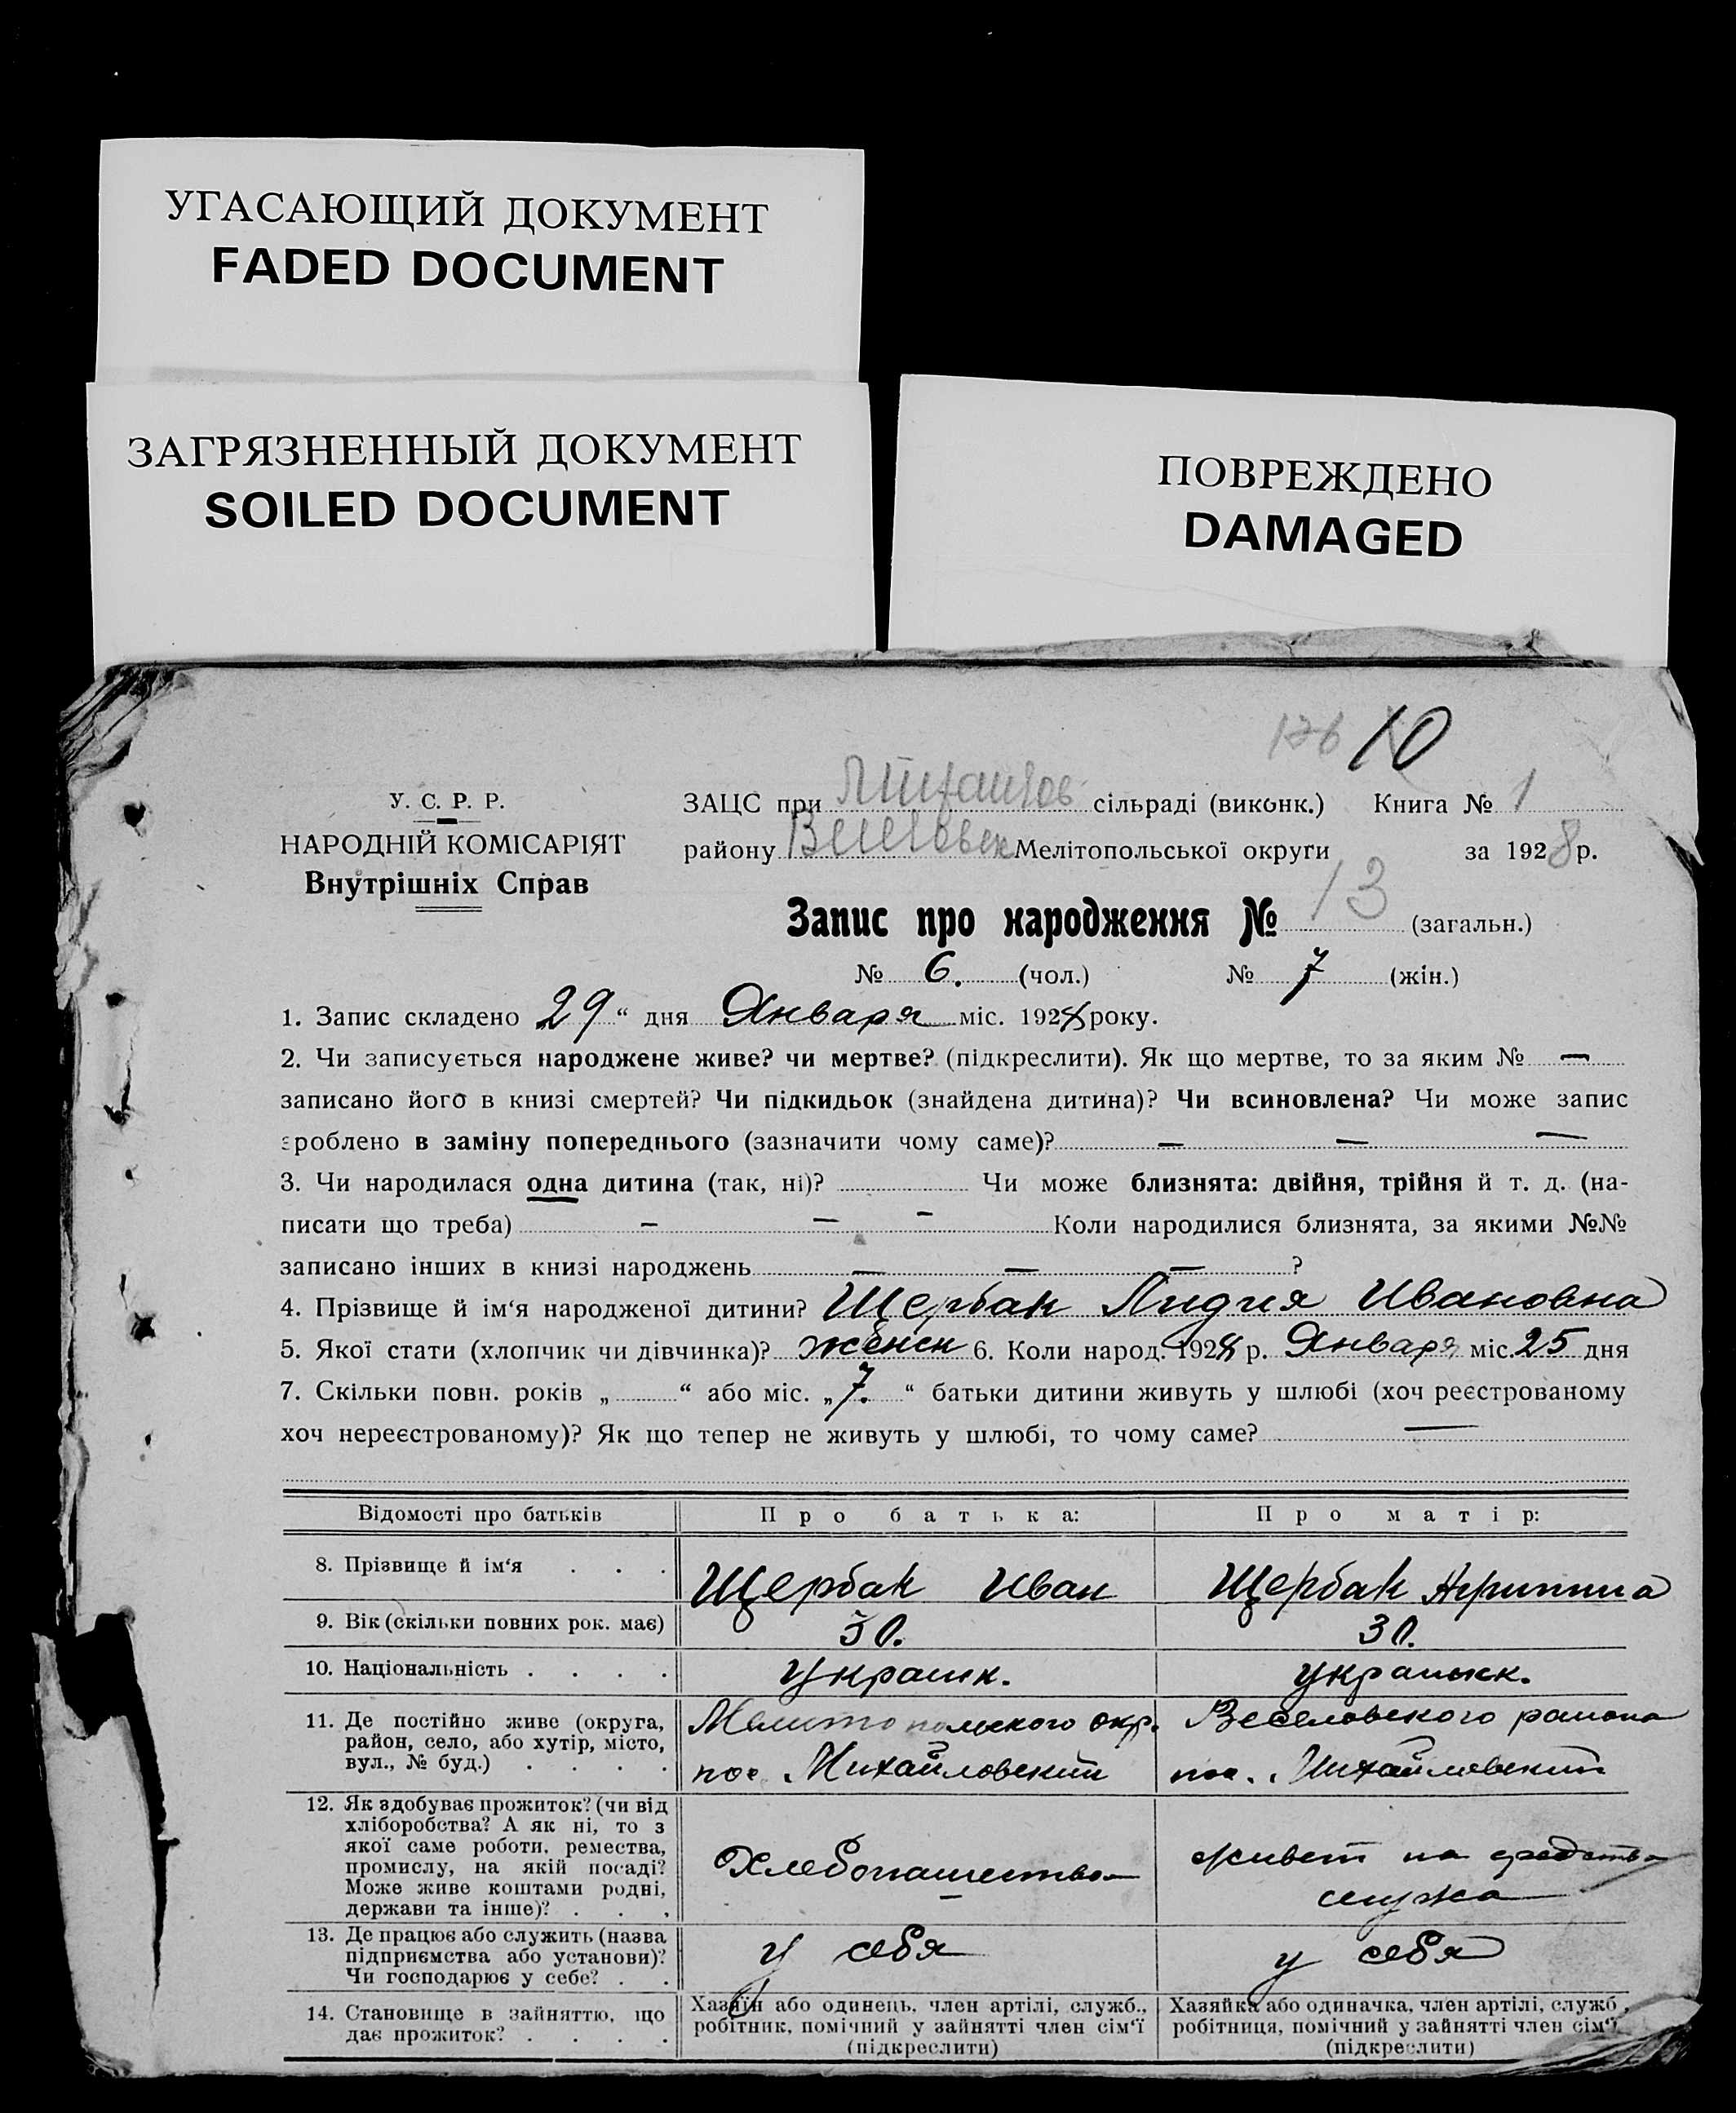 УГАСАЮЩИЙ ДОКУМЕНТ
FADED DOCUMENT
ЗАГРЯЗНЕННЫЙ ДОКУМЕНТ
SOILED DOCUMENT
ПОВРЕЖДЕНО
DAMAGED
176 10
У. С. Р. Р.
НАРОДНІЙ КОМІСАРІЯТ
Внутрішніх Справ
ЗАЦС при сільраді (виконк.) Книга № 1
району Мелітопольської округи за 1928 р.
Запис про народження № 13 (загальн.)
№ 6. (чол.) № 7 (жін.)
1. Запис складено „29“ дня Января міс. 1928 року.
2. Чи записується народжене живе? чи мертве? (підкреслити). Як що мертве, то за яким № —
записано його в книзі смертей? Чи підкидьок (знайдена дитина)? Чи всиновлена? Чи може запис
зроблено в заміну попереднього (зазначити чому саме)? — — —
3. Чи народилася одна дитина (так, ні)? Чи може близнята: двійня, трійня й т. д. (на-
писати що треба) — — — Коли народилися близнята, за якими №№
записано інших в книзі народжень — — — ?
4. Прізвище й ім‘я народженої дитини? Щербак Лидия Ивановна
5. Якої стати (хлопчик чи дівчинка)? женск 6. Коли народ. 1928 р. Января міс. 25 дня
7. Скільки повн. років „ “ або міс. „7.“ батьки дитини живуть у шлюбі (хоч реєстрованому
хоч нереєстрованому)? Як що тепер не живуть у шлюбі, то чому саме? —
Відомості про батьків Про батька: Про матір:
8. Прізвище й ім‘я . . . Щербак Иван Щербак Агриппина
9. Вік (скільки повних рок. має) 30. 30.
10. Національність . . . . украинк. украинк.
11. Де постійно живе (округа,
район, село, або хутір, місто,
вул., № буд.) . . . .
Мелитопольского окр.
пос. Михайловский
Веселовского района
пос. Михайловский
12. Як здобуває прожиток? (чи від
хліборобства? А як ні, то з
якої саме роботи, ремества,
промислу, на якій посаді?
Може живе коштами родні,
держави та інше)? . . .
Хлебопашество
живет на средства
мужа
13. Де працює або служить (назва
підприємства або установи)?
Чи господарює у себе? . .
у себя
у себя
14. Становище в зайняттю, що
дає прожиток? . . . .
Хазяїн або одинець, член артілі, служб.,
робітник, помічний у зайнятті член сім‘ї
(підкреслити)
Хазяйка або одиначка, член артілі, служб.,
робітниця, помічний у зайнятті член сім‘ї
(підкреслити)